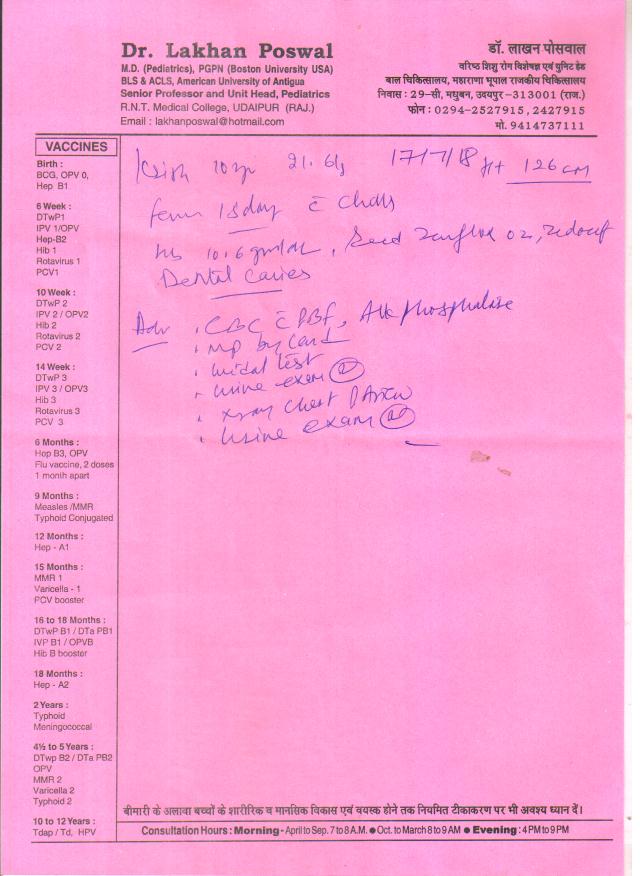 Dr. Lakhan Poswal
M.D. (Pediatrics), PGPN (Boston University USA)
BLS & ACLS, American University of Antigua
Senior Professor and Unit Head, Pediatrics
R.N.T. Medical College, UDAIPUR (RAJ.)
Email : lakhanposwal@hotmail.com
डॉ. लाखन पोसवाल
वरिष्ठ शिशु रोग विशेषज्ञ एवं युनिट हेड
बाल चिकित्सालय, महाराणा भूपाल राजकीय चिकित्सालय
निवास : 29-सी, मधुबन, उदयपुर -313001 (राज.)
फोन : 0294-2527915, 2427915
मो. 9414737111
VACCINES
Birth :
BCG, OPV 0,
Hep B1
6 Week :
DTwP1
IPV 1/OPV
Hep-B2
Hib 1
Rotavirus 1
PCV1
10 Week :
DTwP 2
IPV 2 / OPV2
Hib 2
Rotavirus 2
PCV 2
14 Week :
DTwP 3
IPV 3 / OPV3
Hib 3
Rotavirus 3
PCV 3
6 Months :
Hop B3, OPV
Flu vaccine, 2 doses
1 month apart
9 Months :
Measles /MMR
Typhoid Conjugated
12 Months :
Hep - A1
15 Months :
MMR 1
Varicella - 1
PCV booster
16 to 18 Months :
DTwP B1 / DTa PB1
IVP B1 / OPVB
Hib B booster
18 Months :
Hep - A2
2 Years :
Typhoid
Meningococcal
4½ to 5 Years :
DTwp B2 / DTa PB2
OPV
MMR 2
Varicella 2
Typhoid 2
10 to 12 Years :
Tdap / Td, HPV
Krish 10 yr 17/7/18 Ht 126 cm
fever 15 day c̄ chills
Hb 10.6 gm/dl,
Dental Caries
Adv . CBC c̄ PBF, Alk phosphatase
. MP by Card
. widal test
. urine exam
. xray chest PA view
. urine exam
बीमारी के अलावा बच्चों के शारीरिक व मानसिक विकास एवं वयस्क होने तक नियमित टीकाकरण पर भी अवश्य ध्यान दें।
Consultation Hours : Morning - April to Sep. 7 to 8 A.M. ● Oct. to March 8 to 9 AM ● Evening : 4 PM to 9 PM